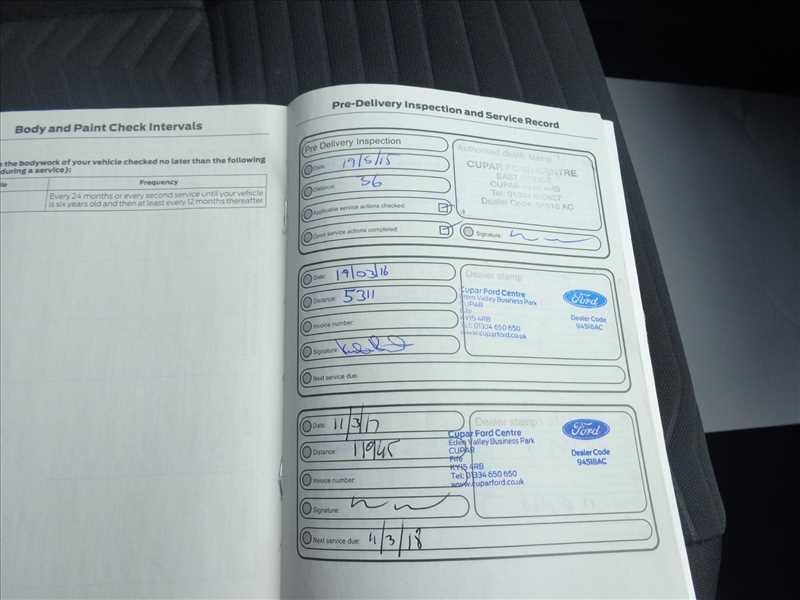 Body and Paint Check Intervals
e the bodywork of your vehicle checked no later than the following
during a service):
Frequency
Every 24 months or every second service until your vehicle
is six years old and then at least every 12 months thereafter
Pre-Delivery Inspection and Service Record
Pre Delivery Inspection
Date: 19/5/15
Distance: 56
Applicable service actions checked:
Open service actions completed:
Authorised dealer stamp
CUPAR FORD CENTRE
Dealer Code: 94518 AC
Signature:
Date: 19/03/16
Distance: 5311
Invoice number:
Signature:
Next service due:
Dealer stamp
Cupar Ford Centre
Eden Valley Business Park
CUPAR
Fife
KY15 4RB
Tel: 01334 650 650
www.cuparford.co.uk
Ford
Dealer Code
94518AC
Date: 11/3/17
Distance: 11945
Invoice number:
Signature:
Next service due: 11/3/18
Dealer stamp
Cupar Ford Centre
Eden Valley Business Park
CUPAR
Fife
KY15 4RB
Tel: 01334 650 650
www.cuparford.co.uk
Ford
Dealer Code
94518AC